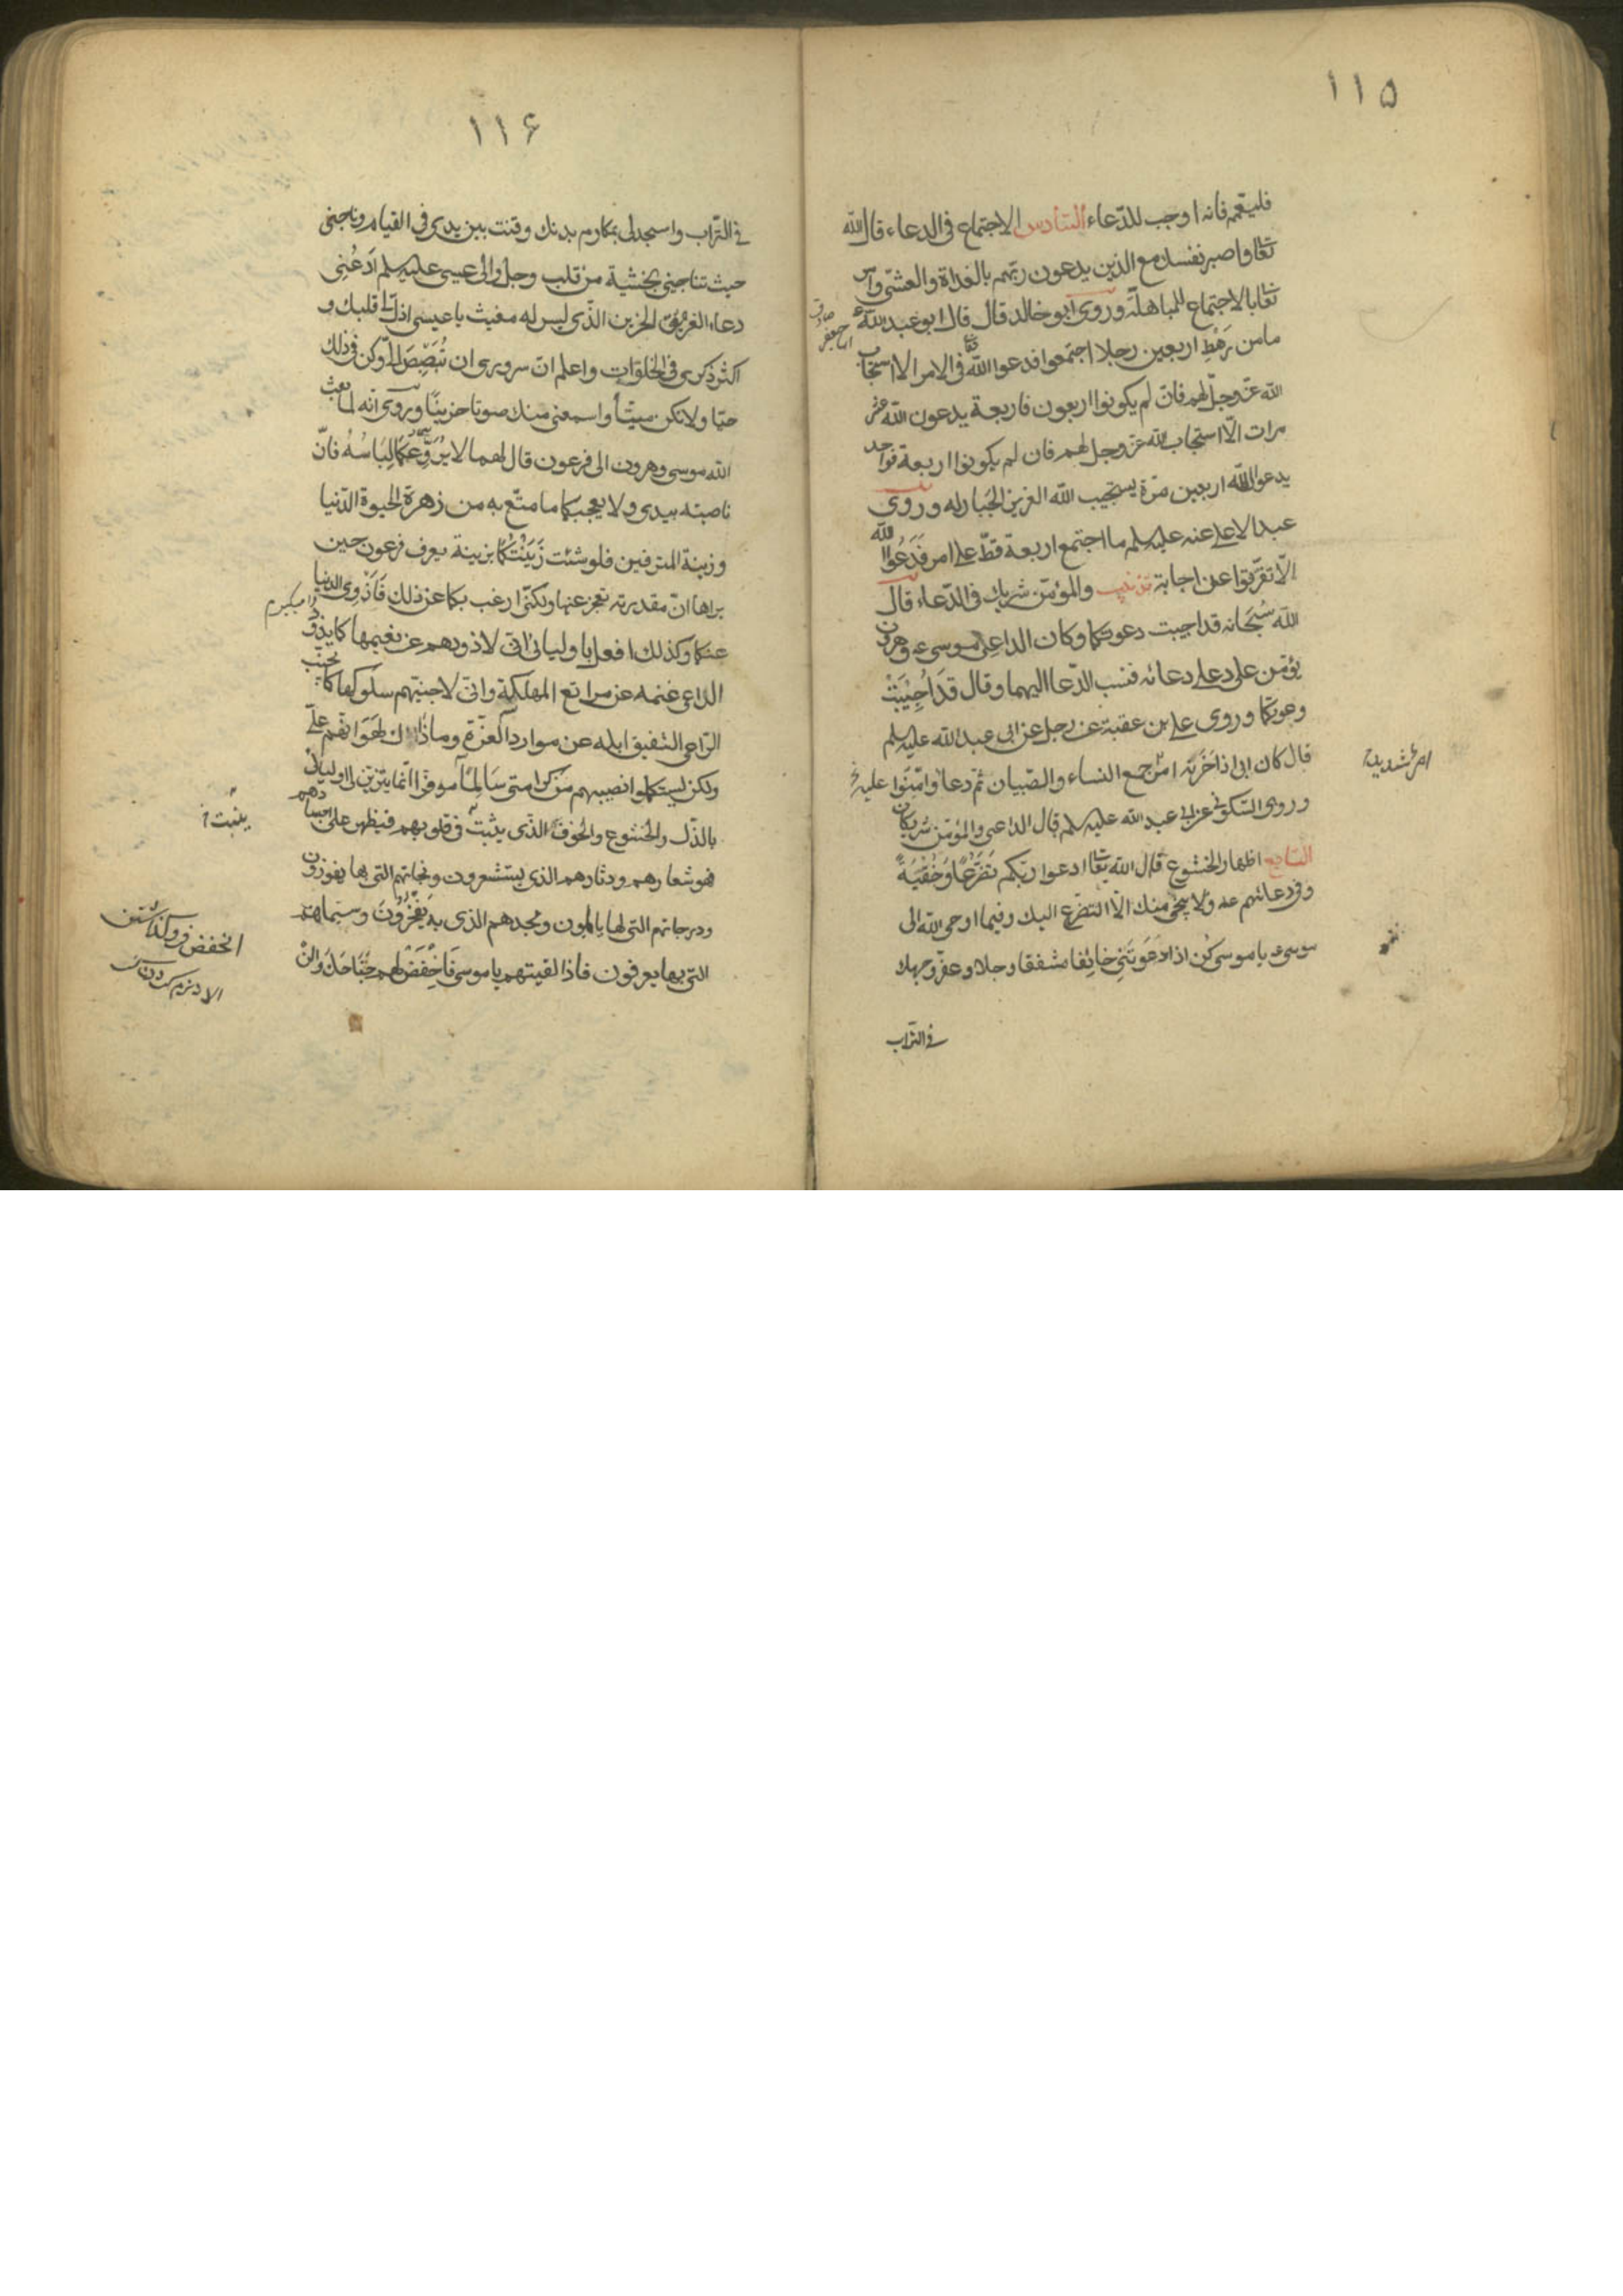 ١١٥
فليعمم فانه اوجب للدّعاء السّادس الاجتماع فى الدعاء قال الله
تعا واصبر نفسك مع الذين يدعون ربّهم بالغداة والعشىّ وامر
تعا بالاجتماع للمباهلة وروى ابو خالد قال قال ابو عبد الله ع
ما من رَهْطٍ اربعين رجلا اجتمعوا فدعوا الله تعا فى الامر الا استجاب
الله عزّ وجلّ لهم فان لم يكونوا اربعون فاربعة يدعون الله عشر
مرات الّا استجاب الله عز وجل لهم فان لم يكونوا اربعة فواحد
يدعو الله اربعين مرّة يستجيب الله العزيز الجبار له وروى
عبد الاعلى عنه عليه سلم ما اجتمع اربعة قطّ على امر فَدَعُوا الله
الّا تفرّقوا عن اجابة تذنيب والمؤمّن شريك فى الدّعاء قال
الله سُبحَانه قد اجيبت دعوتكما وكان الداعى موسى ع وهرون
يؤمّن على دعائه فنسب الدّعا اليهما وقال قَدَ اُجِيْبَتْ
دعوتكما وروى على بن عقبة عن رجل عن ابى عبد الله عليه سلم
قال كان ابى اذا حَزَنَه امر جمع النساء والصّبيان ثمّ دعا وامّنوا عليه
وروى السّكونى عن ابى عبد الله عليه سلم قال الداعى والمؤمّن شريكان
السّابع اظهار الخشوع قال الله تعا ادعوا ربّكم تَضَرُّعًا وَخُفْيَةً
وفى دعائهم عه ولا ينجى منك الّا التضرّع اليك وفيما اوحى الله الى
موسى ع يا موسى كن اذا دَعَوتَنِى خائِفا مشفقا وجلا وعفّر وجهك
فى التراب
امر شديد
١١۶
فى التّراب واسجد لى بمكارم بدنك وقنت بين يدى فى القيام وناجنى
حيث تناجينى بخشية من قلب وجل والى عيسى عليه سلم اُدعُنِى
دعاء الغريق الحزين الذّى ليس له مغيث يا عيسى اذلّ لى قلبك و
اكثر ذكرى فى الخلوَاتِ واعلم انّ سرورى ان تُبَصْبِصَ الىّ وكن فى ذلك
حيّا ولا تكن ميتًا واسمعنى منك صوتا حزينًا وروى انه لما بعث
الله موسى وهرون الى فرعون قال لهما لا يُرَوِّعَكُما لِبَاسُهُ فانّ
ناصيته بيدى ولا يعجبكما ما متّع به من زهرة الحيوة الدّنيا
وزينة المترفين فلو شئت زَيّنْتُكُما بزينة يعرف فرعون حين
يراها انّ مقدرته تعجز عنها ولكنّى ارغب بكما عن ذلك فَاَزْوِى الدنيا
عنكما وكذلك افعل باوليائى انى لاذودهم عن نعيمها كما يذود
الراعى غنمه عن مراتع المهلكة وانى لاجنبّهم سلوكها كما يجنّب
الرّاعى الشفيق ابله عن موارد العزّة وما ذاك لِهَوَانهم علىّ
ولكن ليستكملوا نصيبهم من كرامتى سَالِمًا موفرا انّما يتزيّن لى اوليائى
بالذّل والخشوع والخوف الذّى يثبت فى قلوبهم فيظهر على اجسادهم
فهو شعارهم ودثارهم الذى يستشعرون ونجاتهم التى بها يفوزون
ودرجاتهم التى لها يأملون ومجدهم الذى به يَفْخَرُونَ وسيماهم
التى بها يعرفون فاذا لقيتهم يا موسى فَاخْفَضْ لهم جَنَاحَكَ وَاَلِنْ
ينبت
الخفض فرو گذاشتن